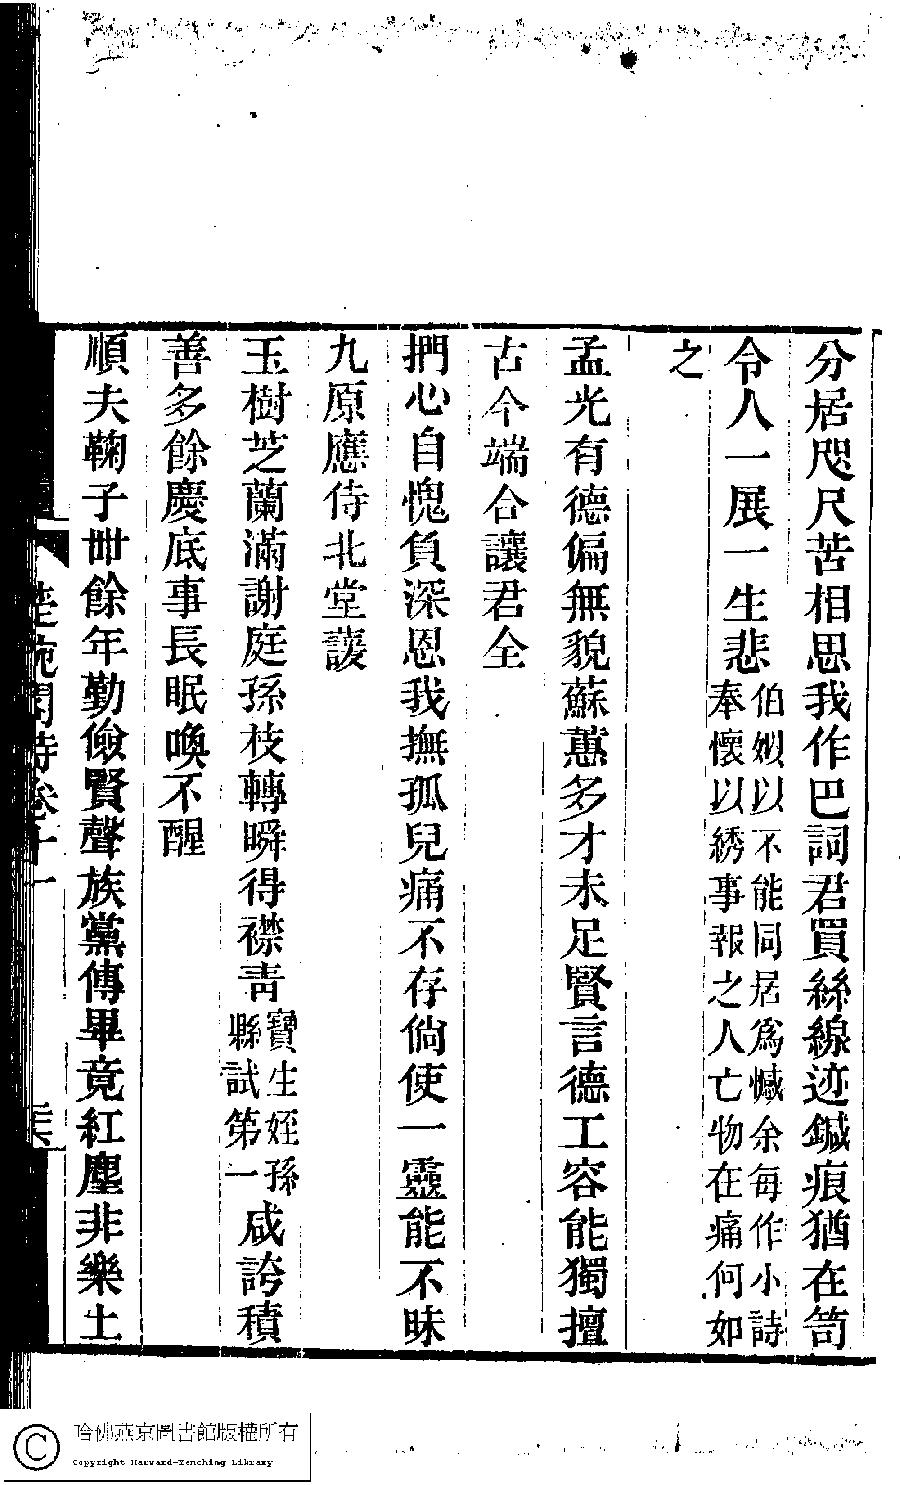 分居咫尺苦相思我作巴詞君買絲線迹鍼痕猶在笥
令人一展一生悲
伯姒以不能同居爲憾余每作小詩
奉懷以綉事報之人亡物在痛何如
之
孟光有德偏無貌蘇蕙多才未足賢言德工容能獨擅
古今端合讓君全
捫心自愧負深恩我撫孤兒痛不存倘使一靈能不昧
九原應侍北堂蘐
玉樹芝蘭滿謝庭孫枝轉瞬得襟青
寶生姪孫
縣試第一
咸誇積
善多餘慶底事長眠喚不醒
順夫鞠子卌餘年勤儉賢聲族黨傳畢竟紅塵非樂土
詩卷十一
哈佛燕京圖書館版權所有
Copyright Harvard-Yenching Library